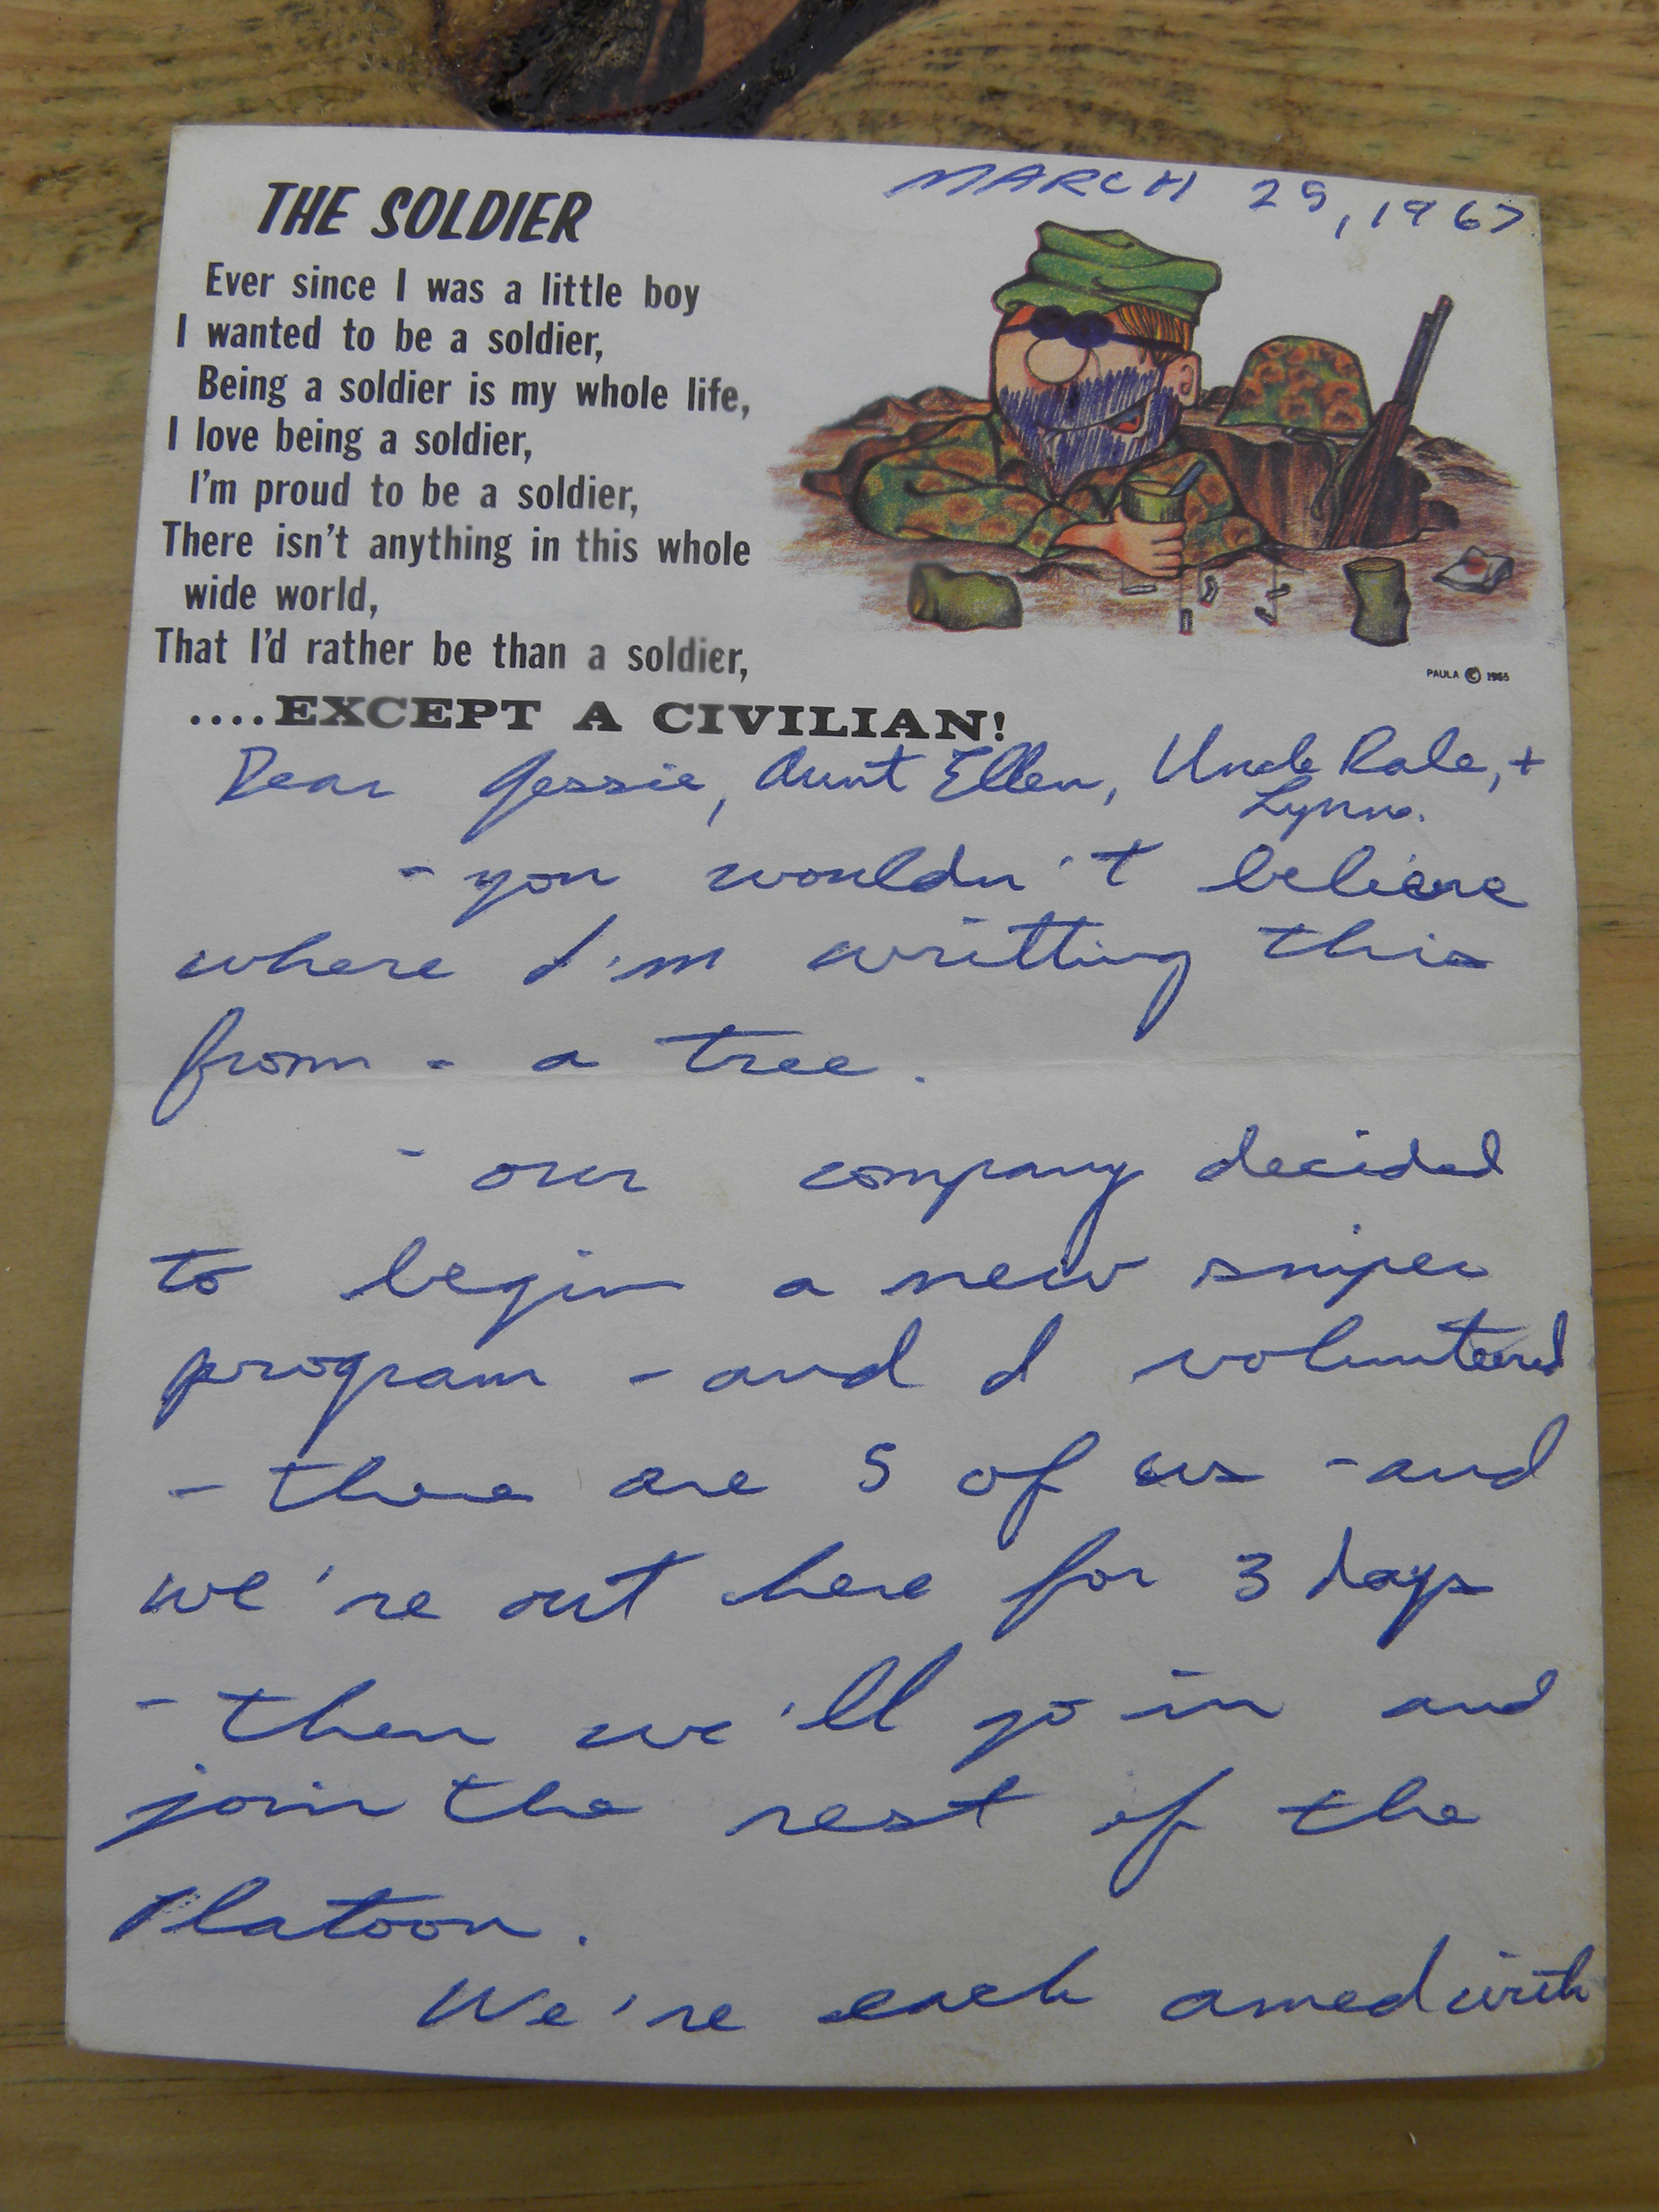 MARCH 25, 1967
THE SOLDIER
Ever since I was a little boy
I wanted to be a soldier,
Being a soldier is my whole life,
I love being a soldier,
I'm proud to be a soldier,
There isn't anything in this whole
wide world,
That I'd rather be than a soldier,
....EXCEPT A CIVILIAN!
PAULA © 1965
Dear Jessie, Aunt Ellen, Uncle +
Lynn.
- you wouldn't believe
where I'm writting this
from - a tree.
- our company decided
to begin a new sniper
program - and I volunteered
- there are 5 of us - and
we're out here for 3 days
- then we'll go in and
join the rest of the
Platoon.
We're each armed with